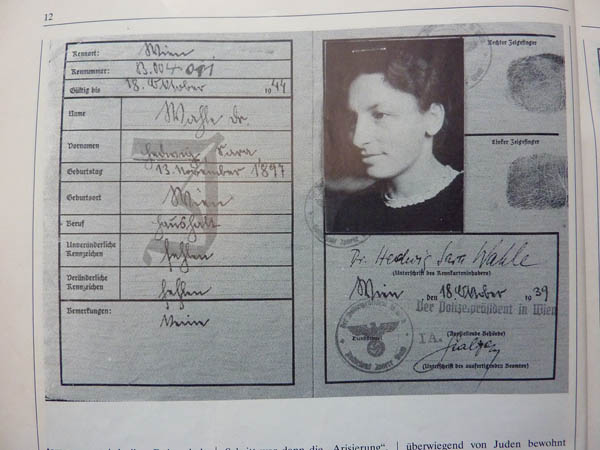 12
Kennort: Wien
Kennummer: B.004091
Gültig bis 18. Oktober 1944
Name Wahle Dr.
Vornamen Hedwig, Sara,
Geburtstag 13. November 1897
Geburtsort Wien
Beruf Haushalt
Unveränderliche Kennzeichen fehlen
Veränderliche Kennzeichen fehlen
Bemerkungen: Nein
J
Rechter Zeigefinger
Linker Zeigefinger
Dr. Hedwig Sara Wahle
(Unterschrift des Kennkarteninhabers)
Wien, den 18. Oktober 1939
Der Polizeipräsident in Wien
(Ausstellende Behörde)
I A.
(Unterschrift des ausfertigenden Beamten)
die „Arisierung“
überwiegend von Juden bewohnt